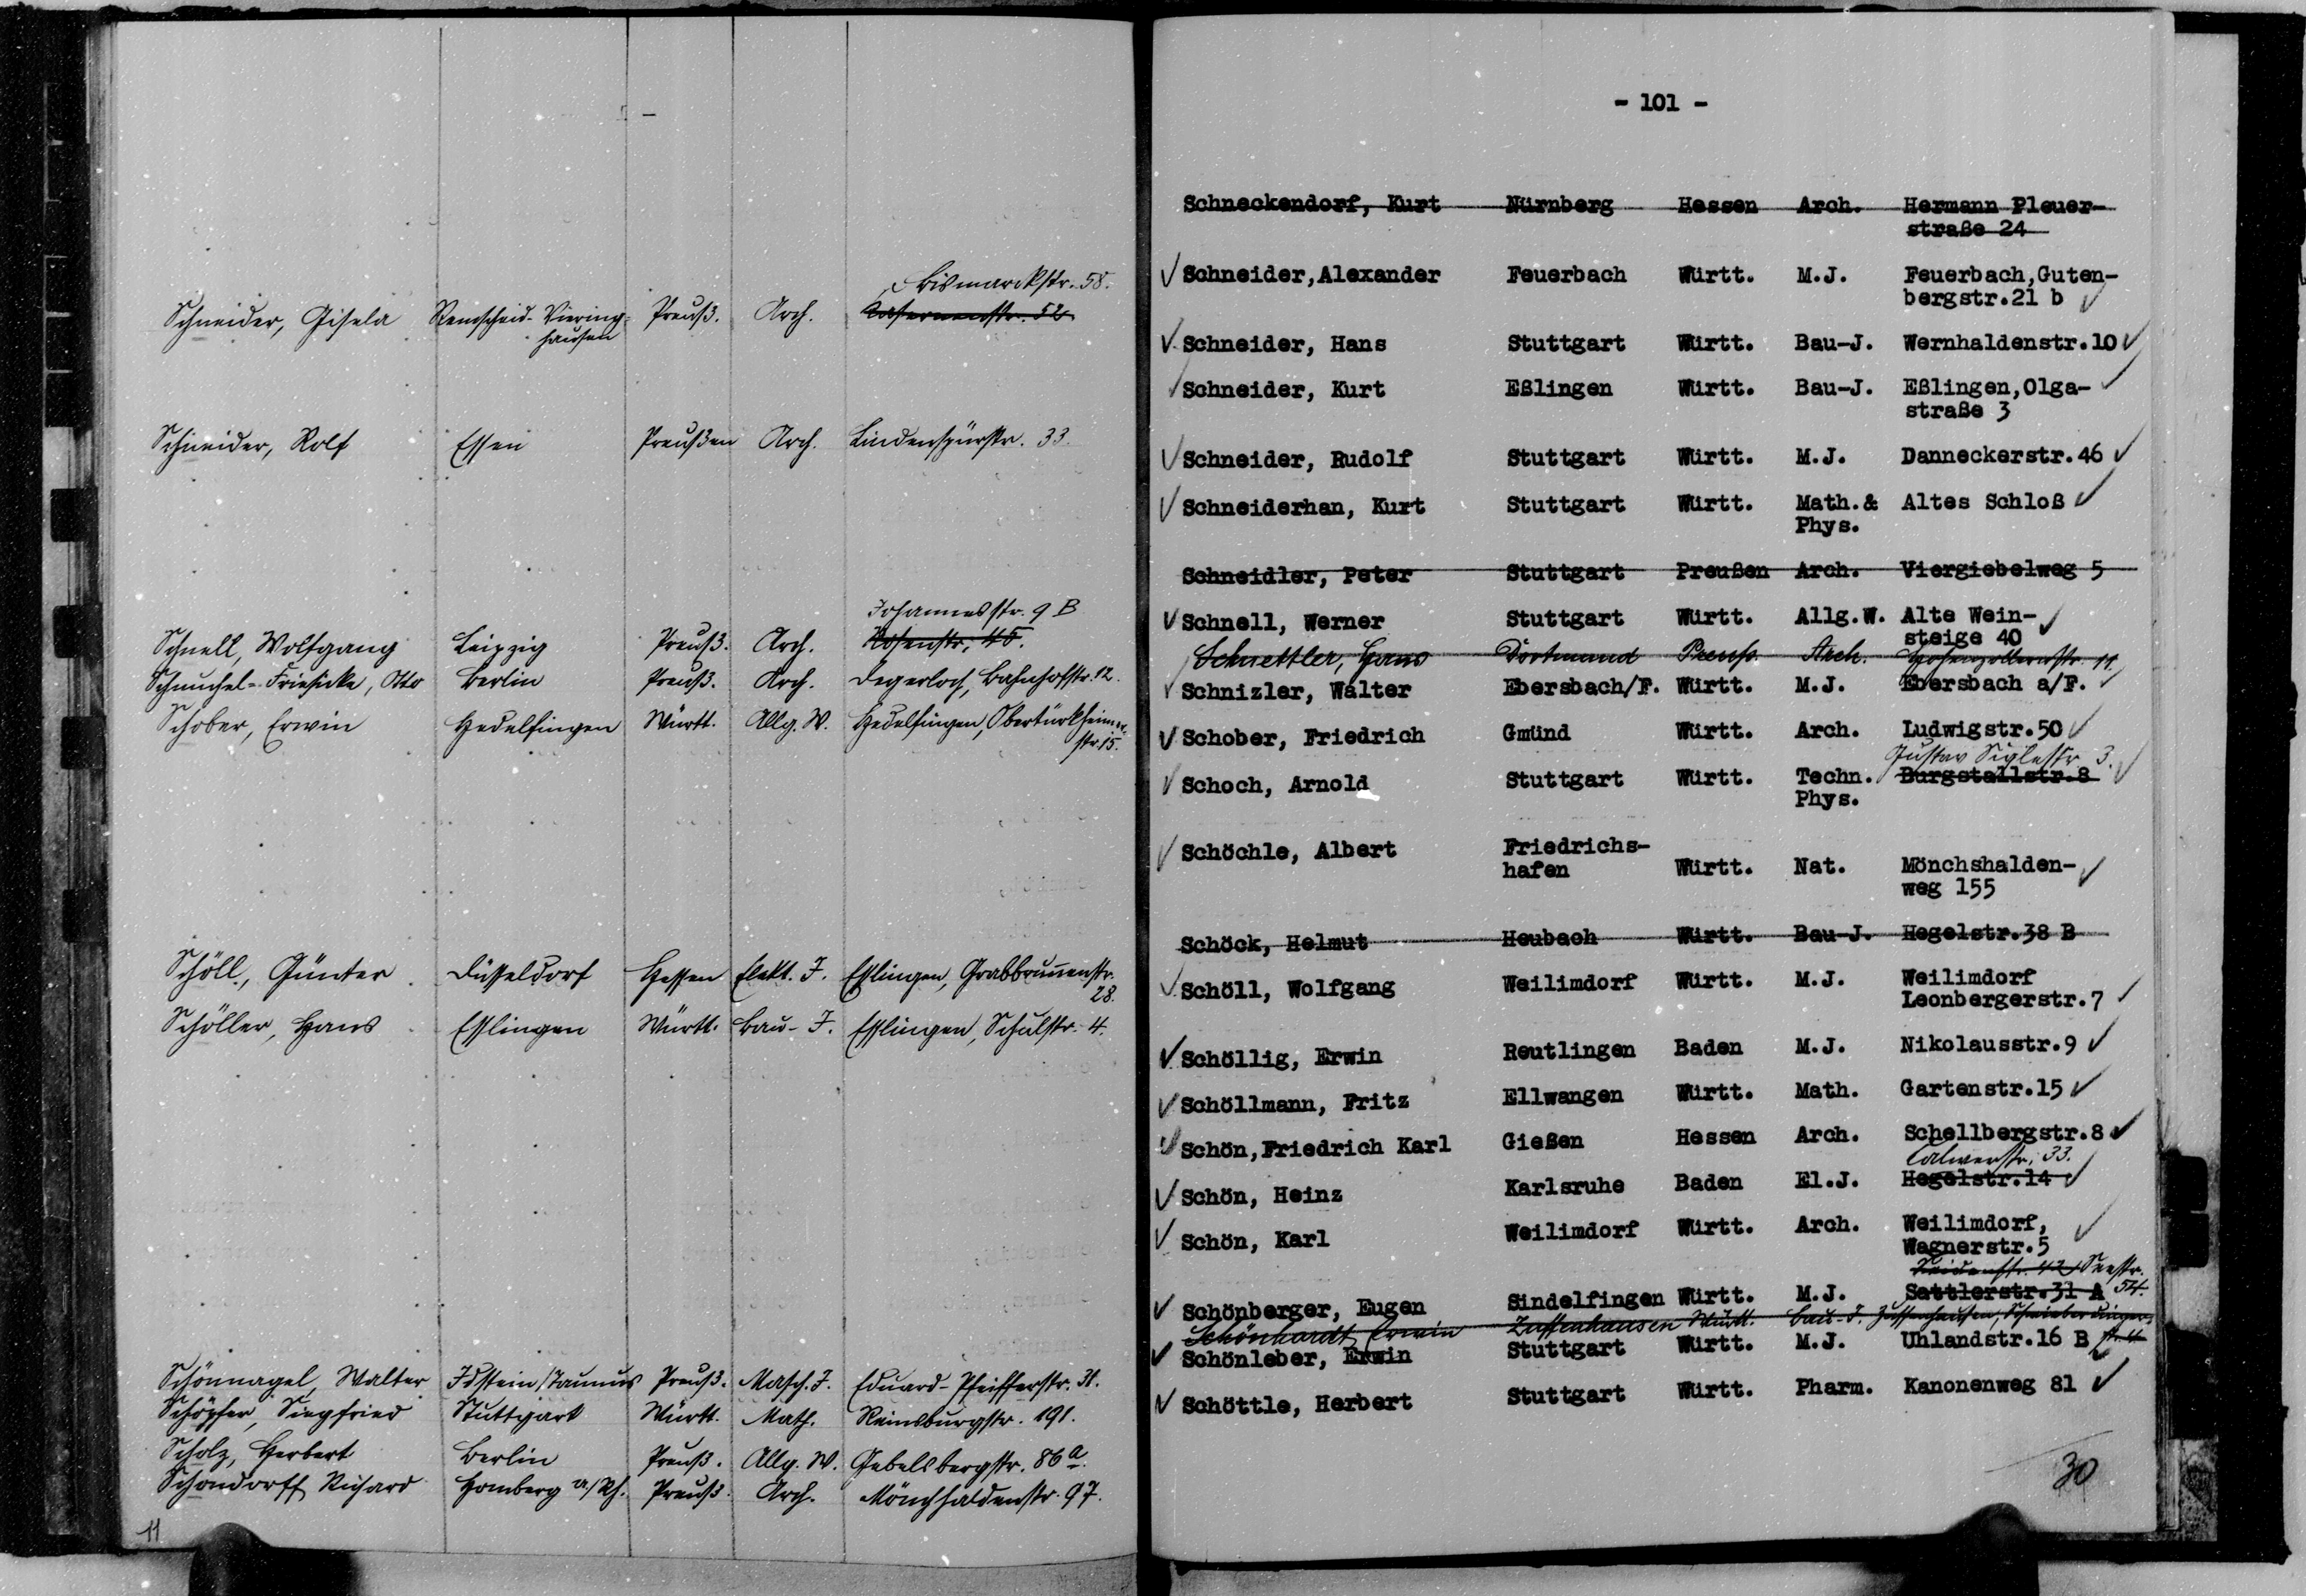 Bismarckstr. 58.
Schneider, Gisela Remscheid-Viering- Preuß. Arch. Kasernenstr. 52
hausen
Schneider, Rolf Essen Preußen Arch. Lindenspürstr. 33.
Johannesstr. 9 B
Schnell, Wolfgang Leipzig Preuß. Arch. Rosenstr. 45.
Schnuchel-Friesicke, Otto Berlin Preuß. Arch. Degerloch, Bahnhofstr. 12.
Schober, Erwin Hedelfingen Württ. Allg. W. Hedelfingen, Obertürkheimer-
str. 15.
Schöll, Günter Düsseldorf Hessen Elekt. J. Esslingen, Grabbrunnenstr.
28.
Schöller, Hans Esslingen Württ. Bau-J. Esslingen, Schulstr. 4.
Schönnagel, Walter Idstein/Taunus Preuß. Masch. J. Eduard-Pfeifferstr. 31.
Schöpfer, Siegfried Stuttgart Württ. Math. Reinsburgstr. 191.
Scholz, Herbert Berlin Preuß. Allg. W. Gebelsbergstr. 86 a.
Schondorff, Richard Homberg a/Rh. Preuß. Arch. Mönchhaldenstr. 97.
11
- 101 -
Schneckendorf, Kurt Nürnberg Hessen Arch. Hermann Pleuer-
straße 24
Schneider, Alexander Feuerbach Württ. M.J. Feuerbach, Guten-
bergstr. 21 b
Schneider, Hans Stuttgart Württ. Bau-J. Wernhaldenstr. 10
Schneider, Kurt Eßlingen Württ. Bau-J. Eßlingen, Olga-
straße 3
Schneider, Rudolf Stuttgart Württ. M.J. Danneckerstr. 46
Schneiderhan, Kurt Stuttgart Württ. Math. & Altes Schloß
Phys.
Schneidler, Peter Stuttgart Preußen Arch. Viergiebelweg 5
Schnell, Werner Stuttgart Württ. Allg. W. Alte Wein-
steige 40
Schnettler, Hans Dortmund Preuß. Arch. Hohenzollernstr. 11.
Schnizler, Walter Ebersbach/F. Württ. M.J. Ebersbach a/F.
Schober, Friedrich Gmünd Württ. Arch. Ludwigstr. 50
Gustav Siglestr. 3.
Schoch, Arnold Stuttgart Württ. Techn. Burgstallstr. 8
Phys.
Schöchle, Albert Friedrichs-
hafen Württ. Nat. Mönchshalden-
weg 155
Schöck, Helmut Heubach Württ. Bau-J. Hegelstr. 38 B
Schöll, Wolfgang Weilimdorf Württ. M.J. Weilimdorf
Leonbergerstr. 7
Schöllig, Erwin Reutlingen Baden M.J. Nikolausstr. 9
Schöllmann, Fritz Ellwangen Württ. Math. Gartenstr. 15
Schön, Friedrich Karl Gießen Hessen Arch. Schellbergstr. 8
Calwerstr. 33.
Schön, Heinz Karlsruhe Baden El.J. Hegelstr. 14
Schön, Karl Weilimdorf Württ. Arch. Weilimdorf,
Wagnerstr. 5
Seidenstr. 42 Seestr.
Schönberger, Eugen Sindelfingen Württ. M.J. Sattlerstr. 31 A 54.
Schönhardt, Erwin Zuffenhausen Württ. Bau-J. Zuffenhausen,
Schönleber, Erwin Stuttgart Württ. M.J. Uhlandstr. 16 B str. 4
Schöttle, Herbert Stuttgart Württ. Pharm. Kanonenweg 81
30